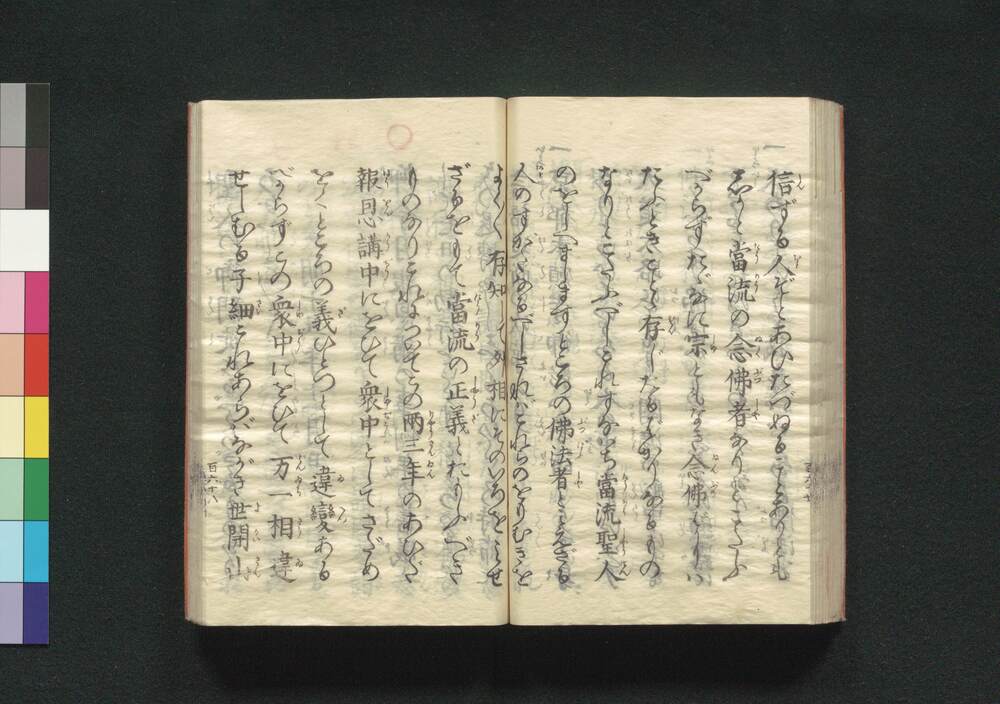 信ずる人ぞとあひたづぬることありとも
しかと當流の念佛者なりとこたふ
べからずたゞなに宗ともなき念佛ばかりは
たふときことと存じたるばかりなるもの
なりとこたふべしこれすなはち當流聖人
のをしへましますところの佛法者とみえざる
人のすがたなるべしされバこれらのをもむきを
よくよく存知して外相にそのいろをみせ
ざるをもて當流の正義とおもふべき
ものなりこれについてこの両三年のあひだ
報恩講中にをひて衆中としてさだめ
をくところの義ひとつとして違變ある
べからずこの衆中にをひて万一相違
せしむる子細これあらばながき世開山
百六十八